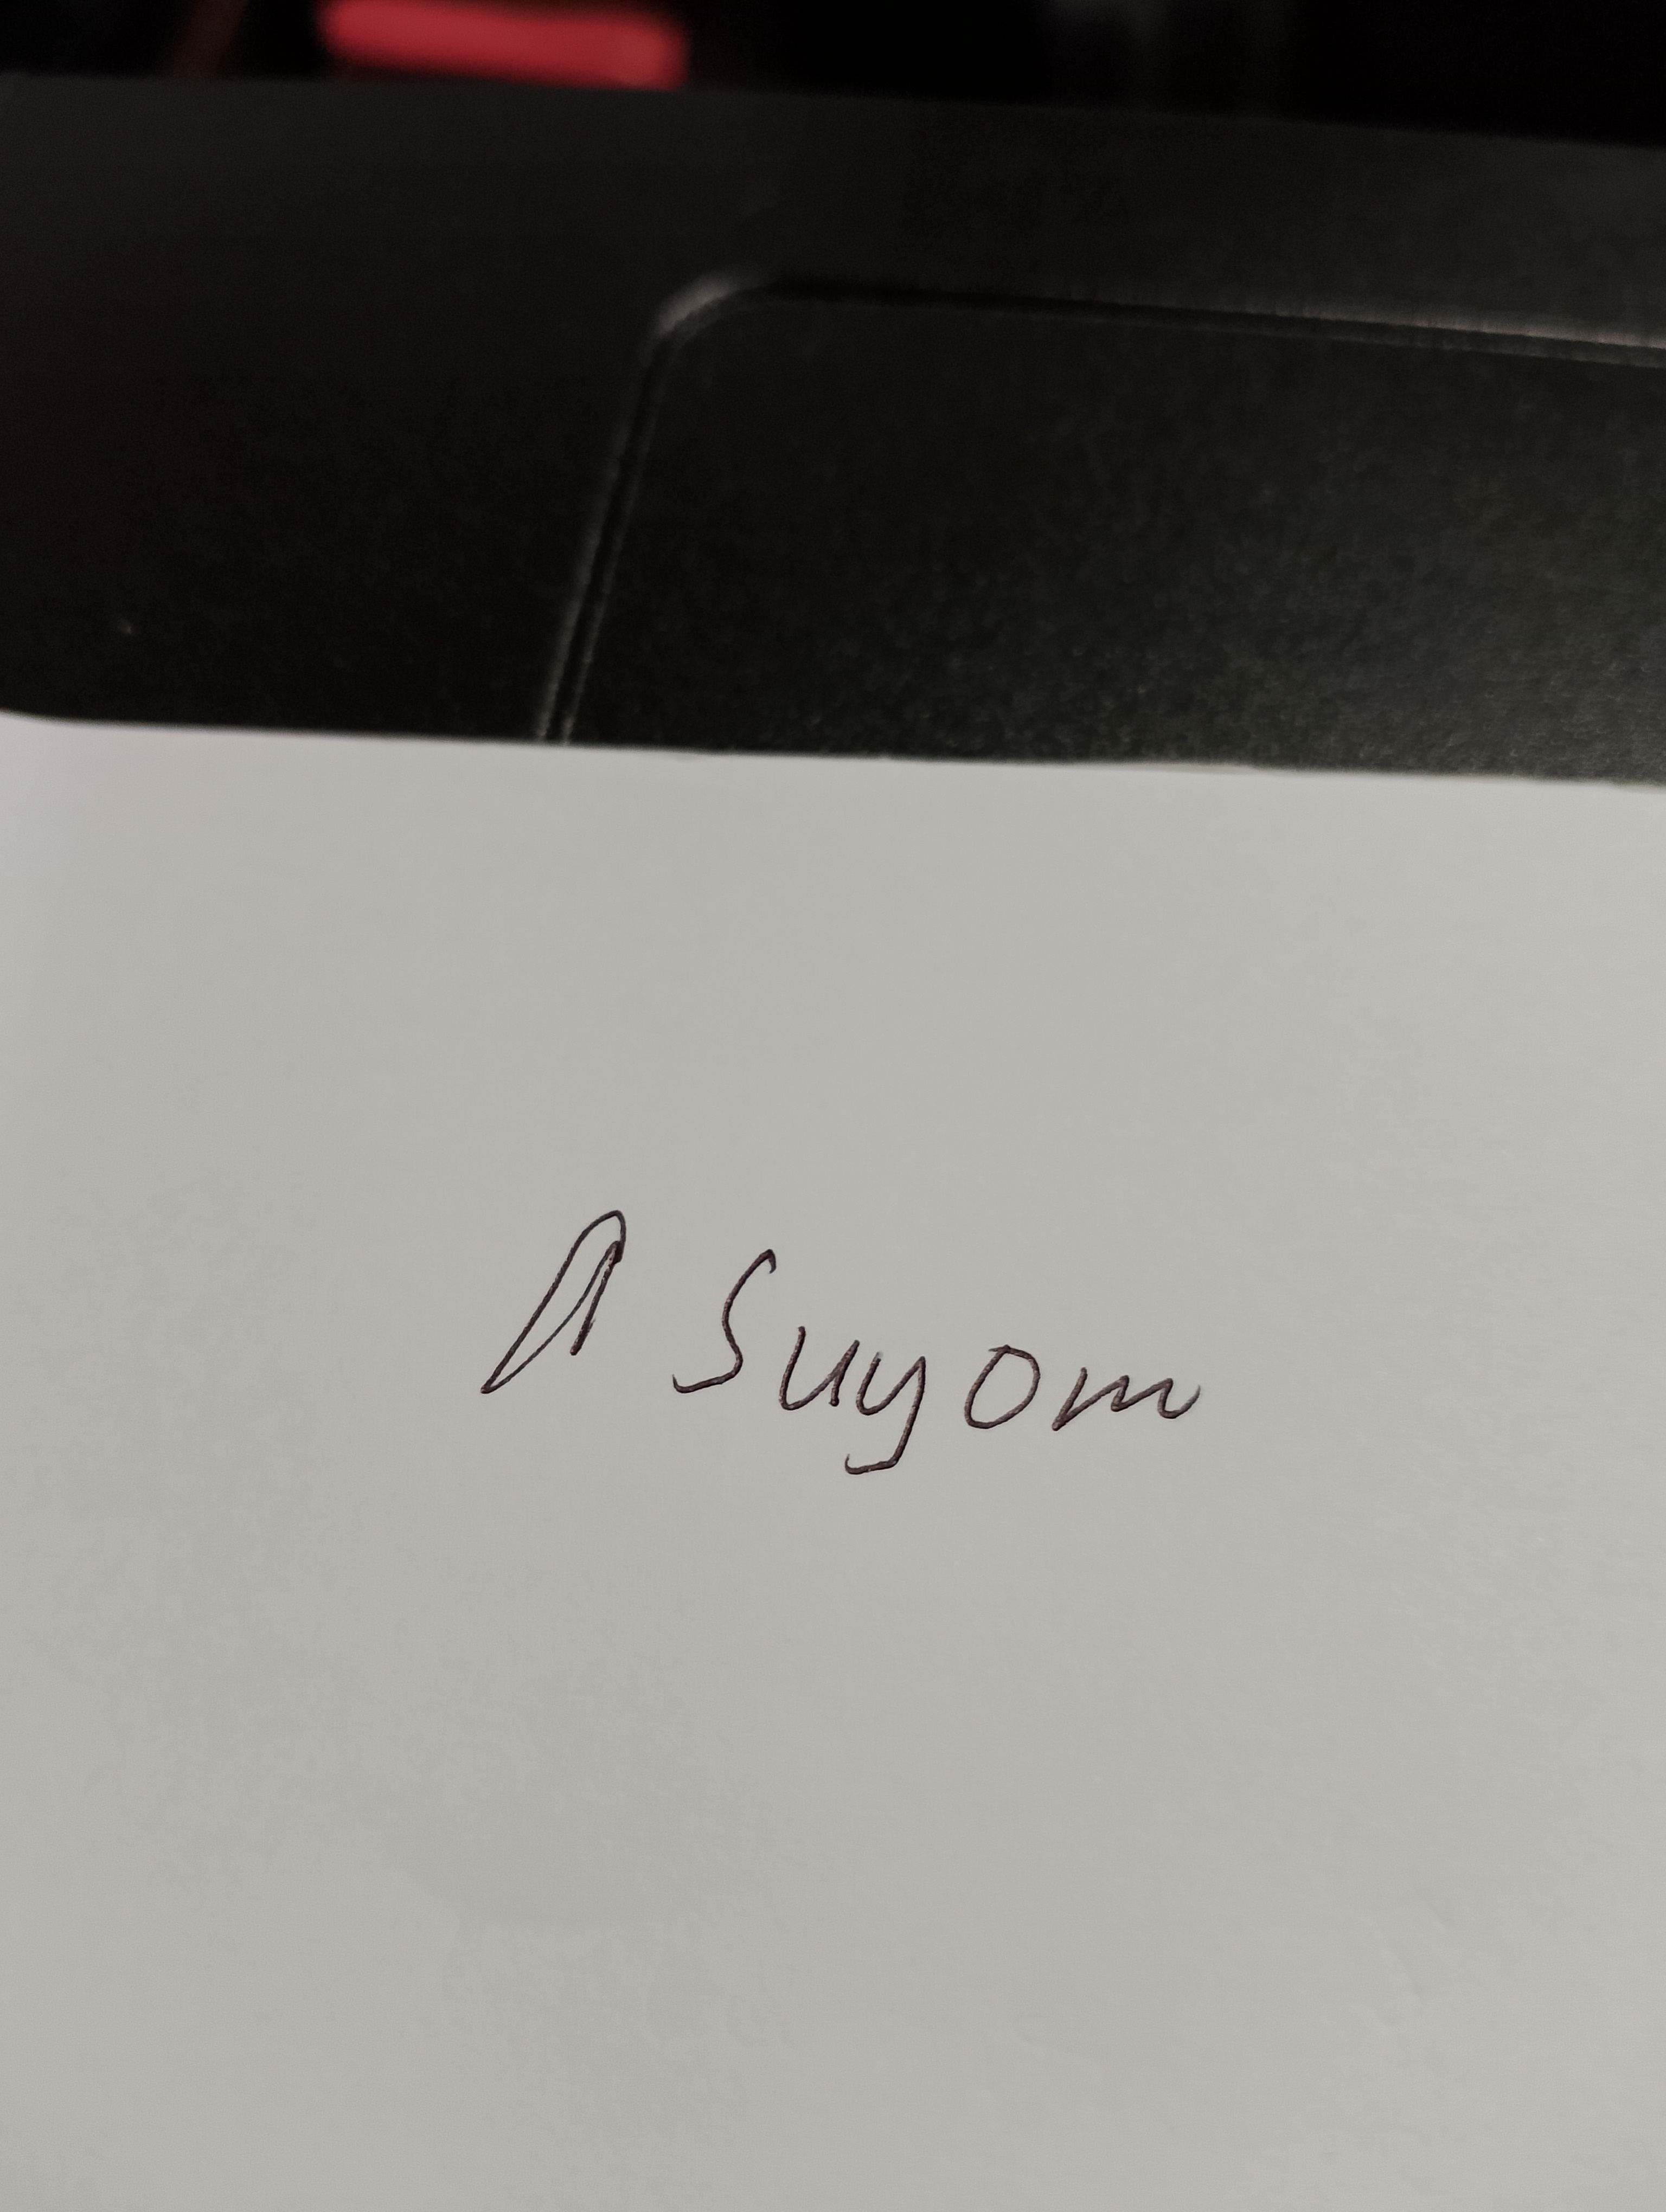 A Suyom